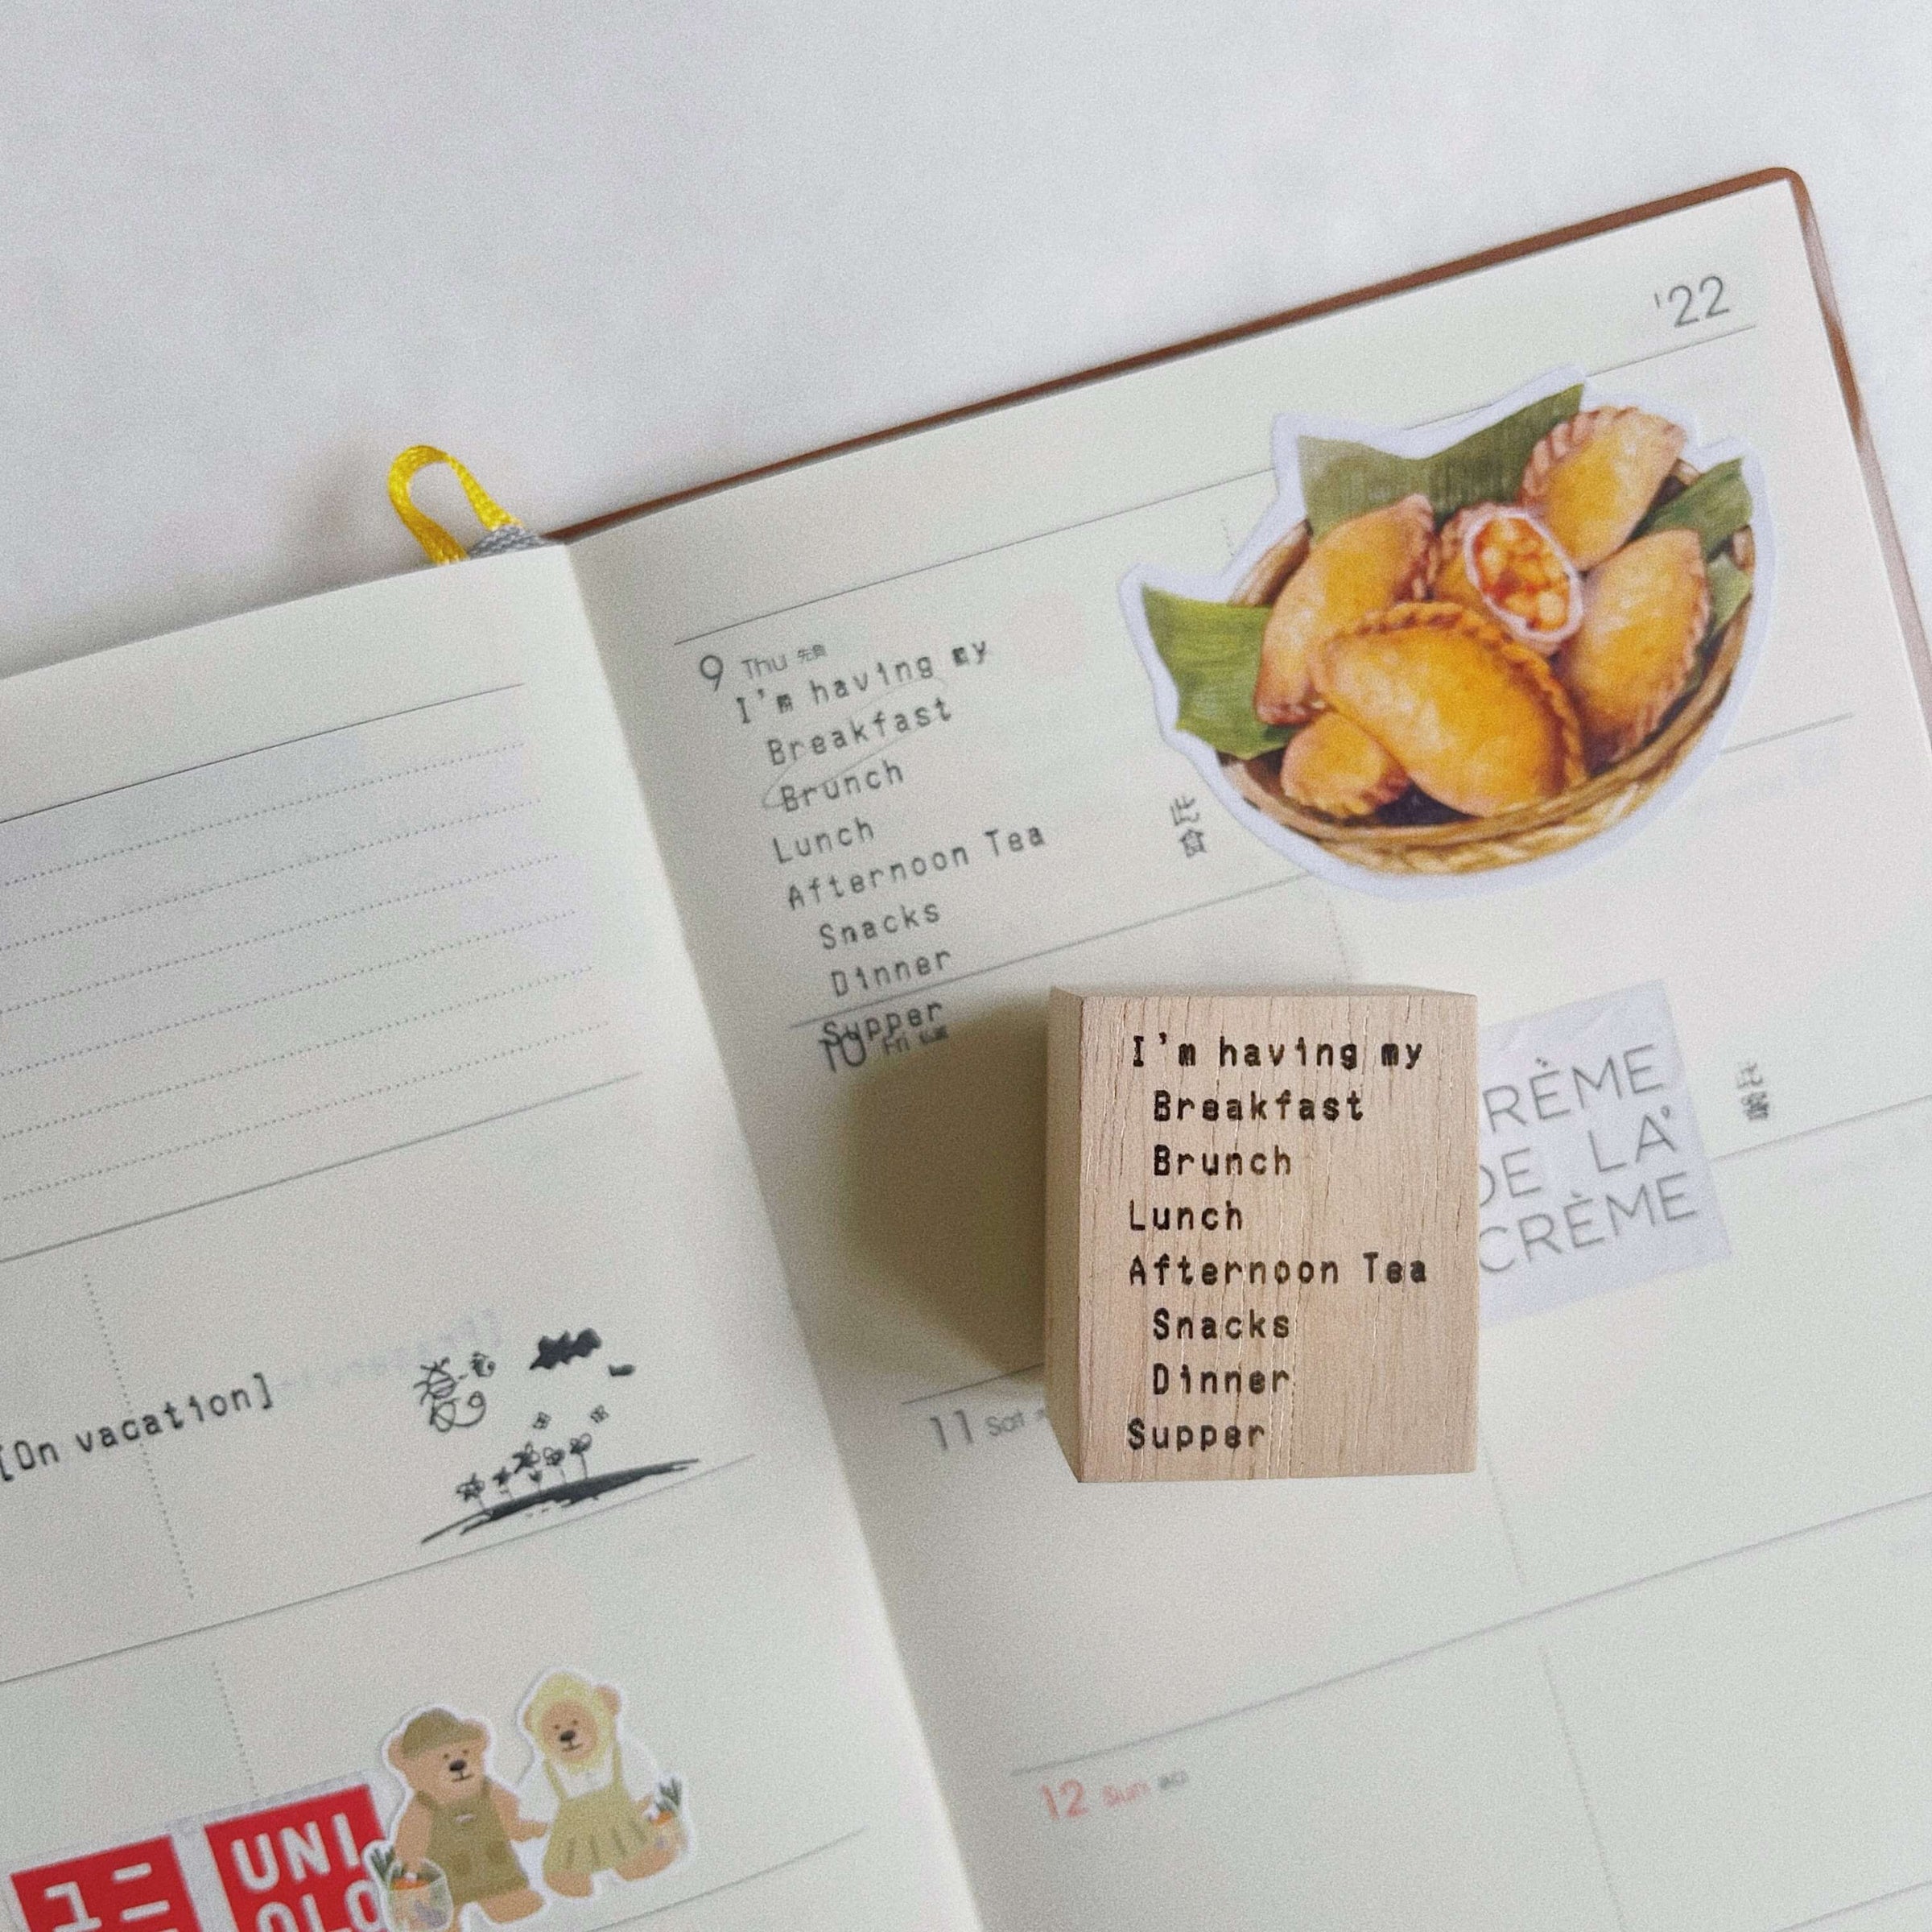 '22
9 Thu 先負
I'm having my
Breakfast
Brunch
Lunch
Afternoon Tea
Snacks
Dinner
Supper
10 Fri 仏滅
I'm having my
Breakfast
Brunch
Lunch
Afternoon Tea
Snacks
Dinner
Supper
RÈME
DE LA
CRÈME
11 Sat
12 Sun
[On vacation]
ユニ
UNI
QLO